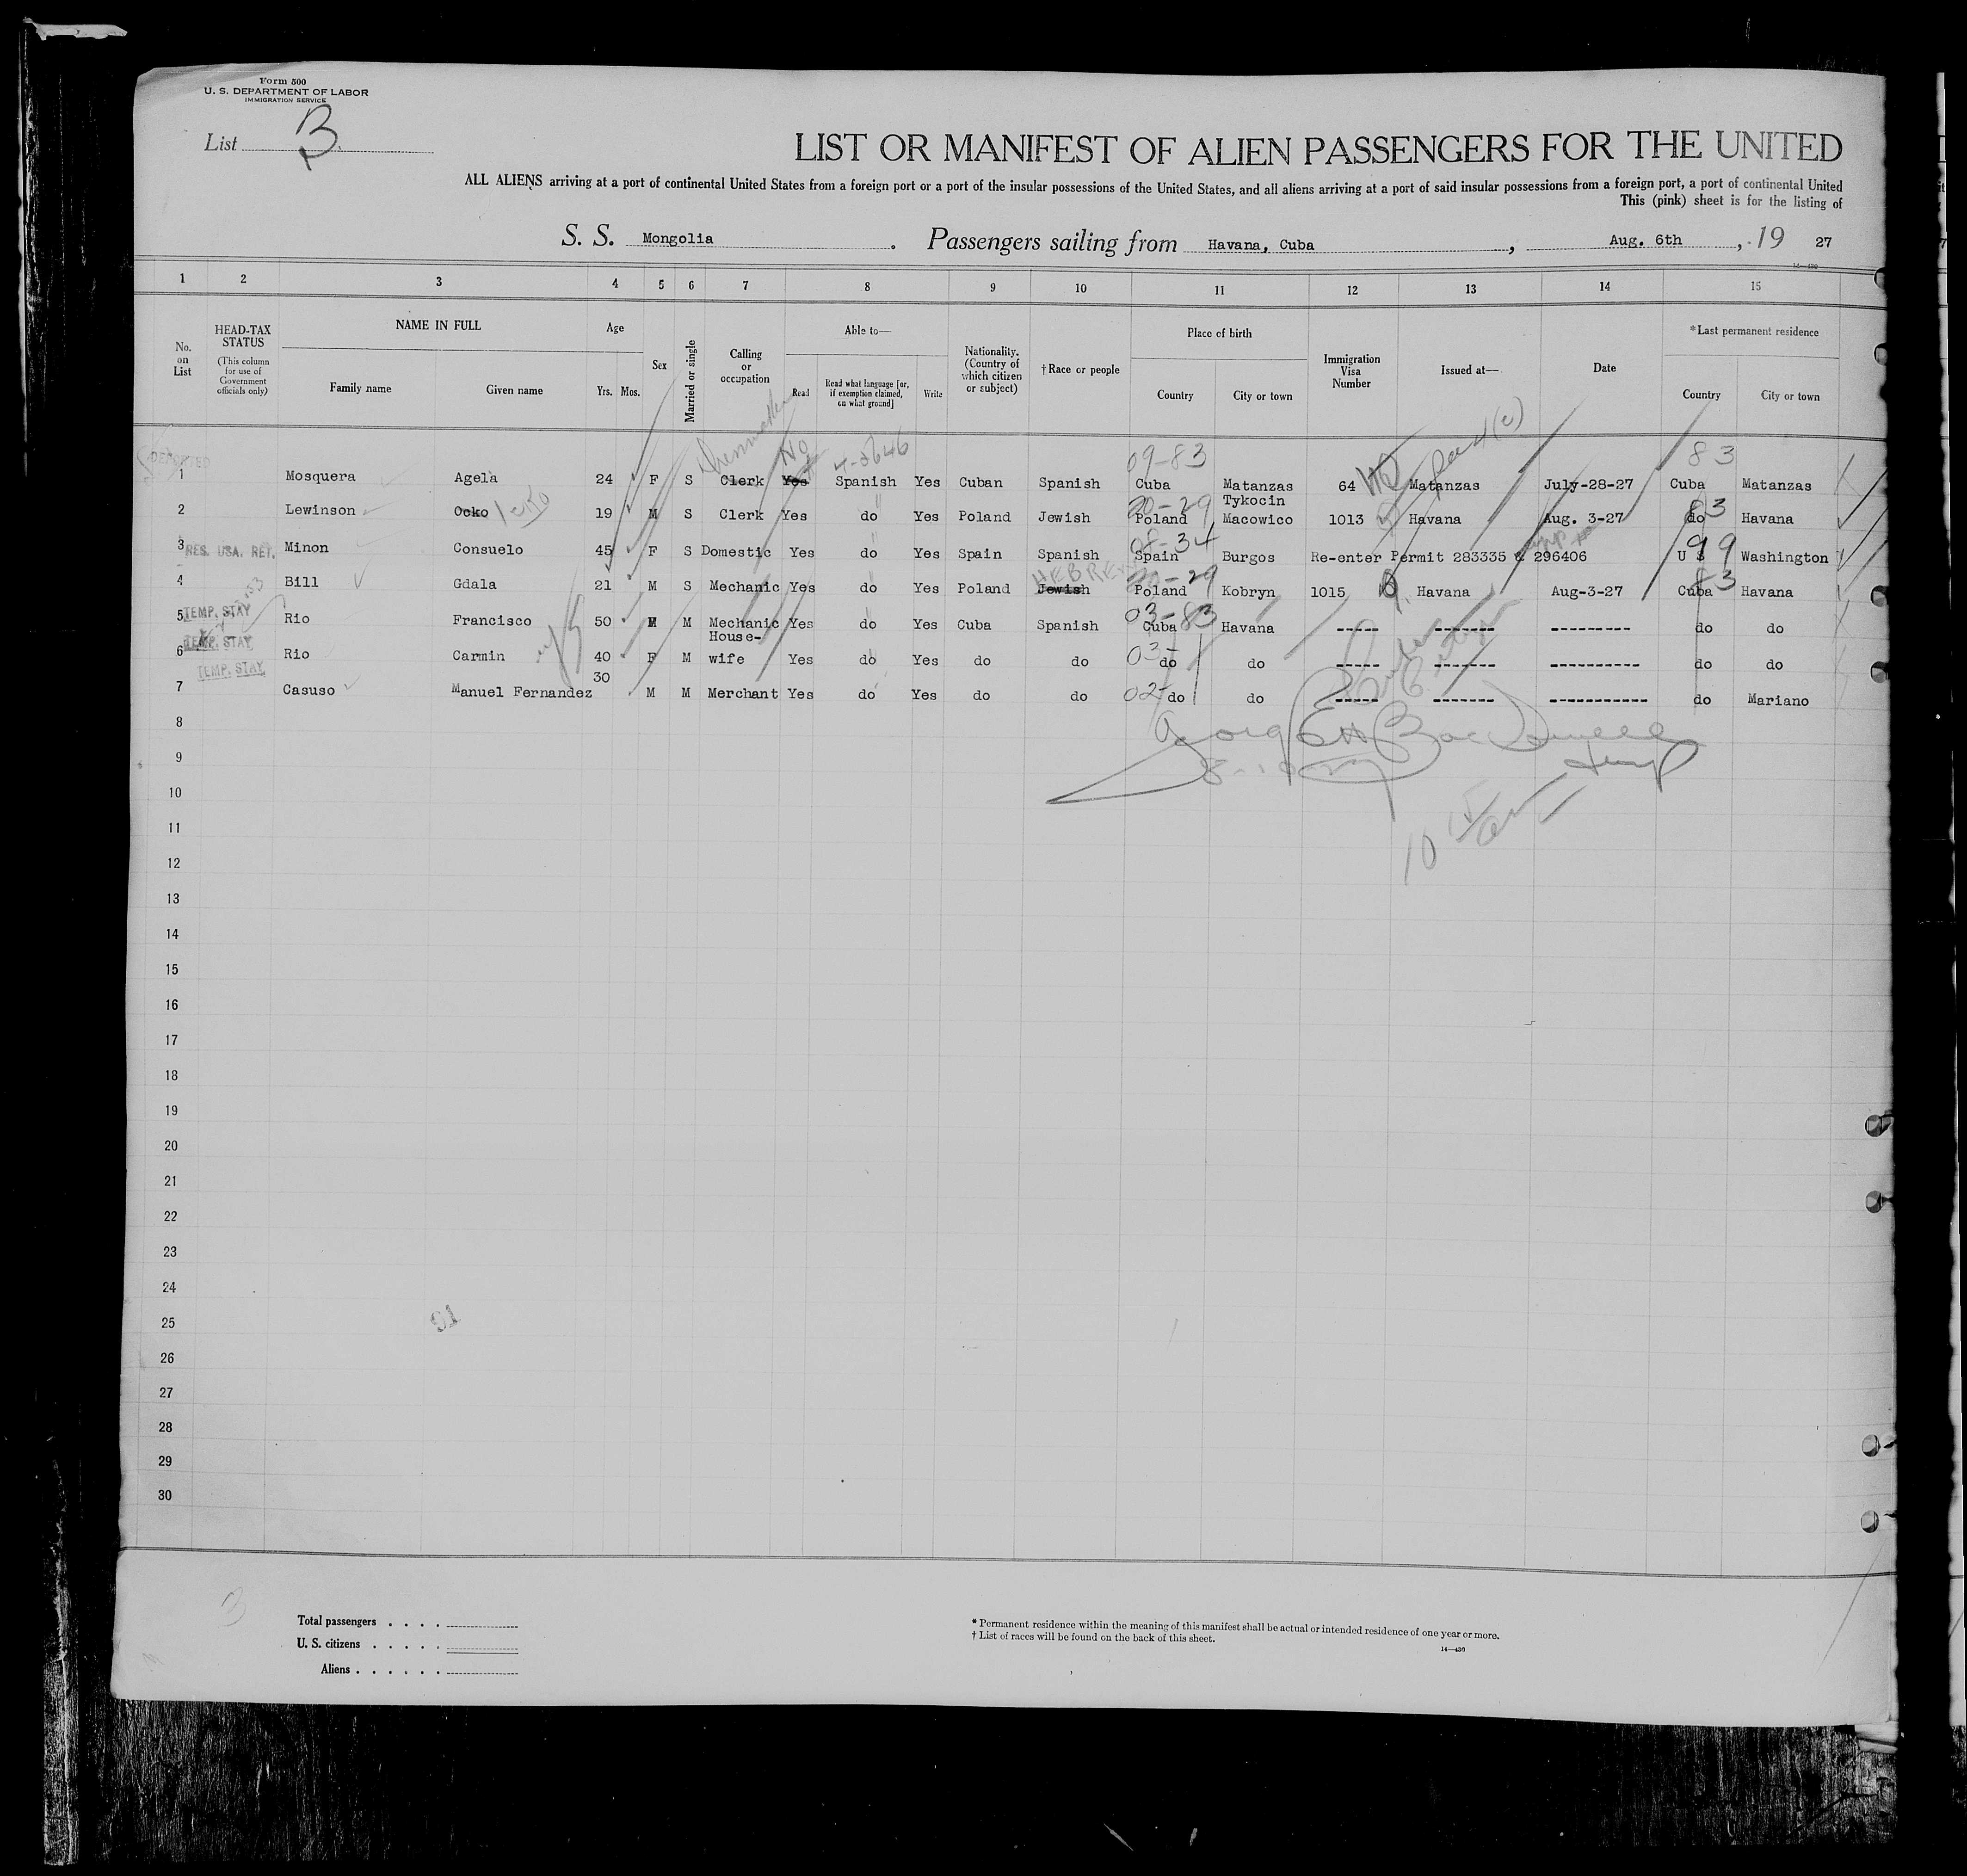 Form 500
U. S. DEPARTMENT OF LABOR
IMMIGRATION SERVICE
List B.
LIST OR MANIFEST OF ALIEN PASSENGERS FOR THE UNITED
ALL ALIENS arriving at a port of continental United States from a foreign port or a port of the insular possessions of the United States, and all aliens arriving at a port of said insular possessions from a foreign port, a port of continental United
This (pink) sheet is for the listing of
S. S. Mongolia. Passengers sailing from Havana, Cuba, Aug. 6th, 19 27
14—430
1 2 3 4 5 6 7 8 9 10 11 12 13 14 15
No. on List
HEAD-TAX STATUS
(This column for use of Government officials only)
NAME IN FULL
Family name
Given name
Age
Yrs. Mos.
Sex
Married or single
Calling or occupation
Able to—
Read
Read what language [or, if exemption claimed, on what ground]
Write
Nationality. (Country of which citizen or subject)
†Race or people
Place of birth
Country
City or town
Immigration Visa Number
Issued at—
Date
*Last permanent residence
Country
City or town
No 09-83 83
DEPORTED
1 Mosquera Agela 24 F S Clerk Yes Spanish Yes Cuban Spanish Cuba Matanzas 64 Matanzas July-28-27 Cuba Matanzas
20-29 Tykocin 83
2 Lewinson Ocko 19 M S Clerk Yes do Yes Poland Jewish Poland Macowico 1013 Havana Aug. 3-27 do Havana
34 99
3 RES. USA. RET. Minon Consuelo 45 F S Domestic Yes do Yes Spain Spanish Spain Burgos Re-enter Permit 283335 & 296406 U S Washington
HEBREW 20-29 83
4 Bill Gdala 21 M S Mechanic Yes do Yes Poland Jewish Poland Kobryn 1015 Havana Aug-3-27 Cuba Havana
TEMP. STAY 03-83
5 Rio Francisco 50 M M Mechanic Yes do Yes Cuba Spanish Cuba Havana ----- ------- --------- do do
TEMP. STAY 03-
6 Rio Carmin 40 F M House-wife Yes do Yes do do do do ----- ------- ---------- do do
TEMP. STAY 02-
7 Casuso Manuel Fernandez 30 M M Merchant Yes do Yes do do do do ----- ------- ----------- do Mariano
8
9
10
11
12
13
14
15
16
17
18
19
20
21
22
23
24
25
26
27
28
29
30
3
Total passengers
U. S. citizens
Aliens
* Permanent residence within the meaning of this manifest shall be actual or intended residence of one year or more.
† List of races will be found on the back of this sheet.
14—430